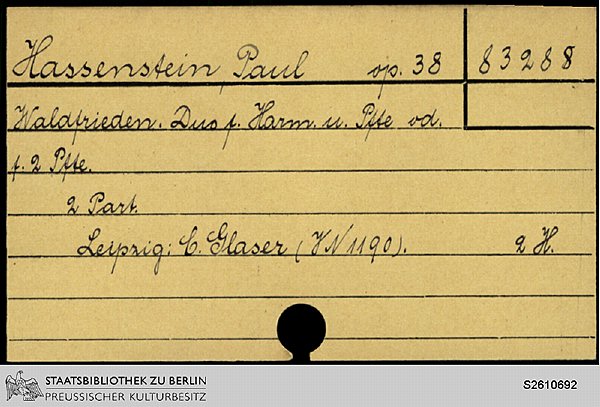 Hassenstein, Paul op. 38 83288
Waldfrieden. Duo f. Harm. u. Pfte od.
f. 2 Pfte.
2 Part.
Leipzig: C. Glaser (VN 1190). 2 H.
STAATSBIBLIOTHEK ZU BERLIN
PREUSSISCHER KULTURBESITZ
S2610692